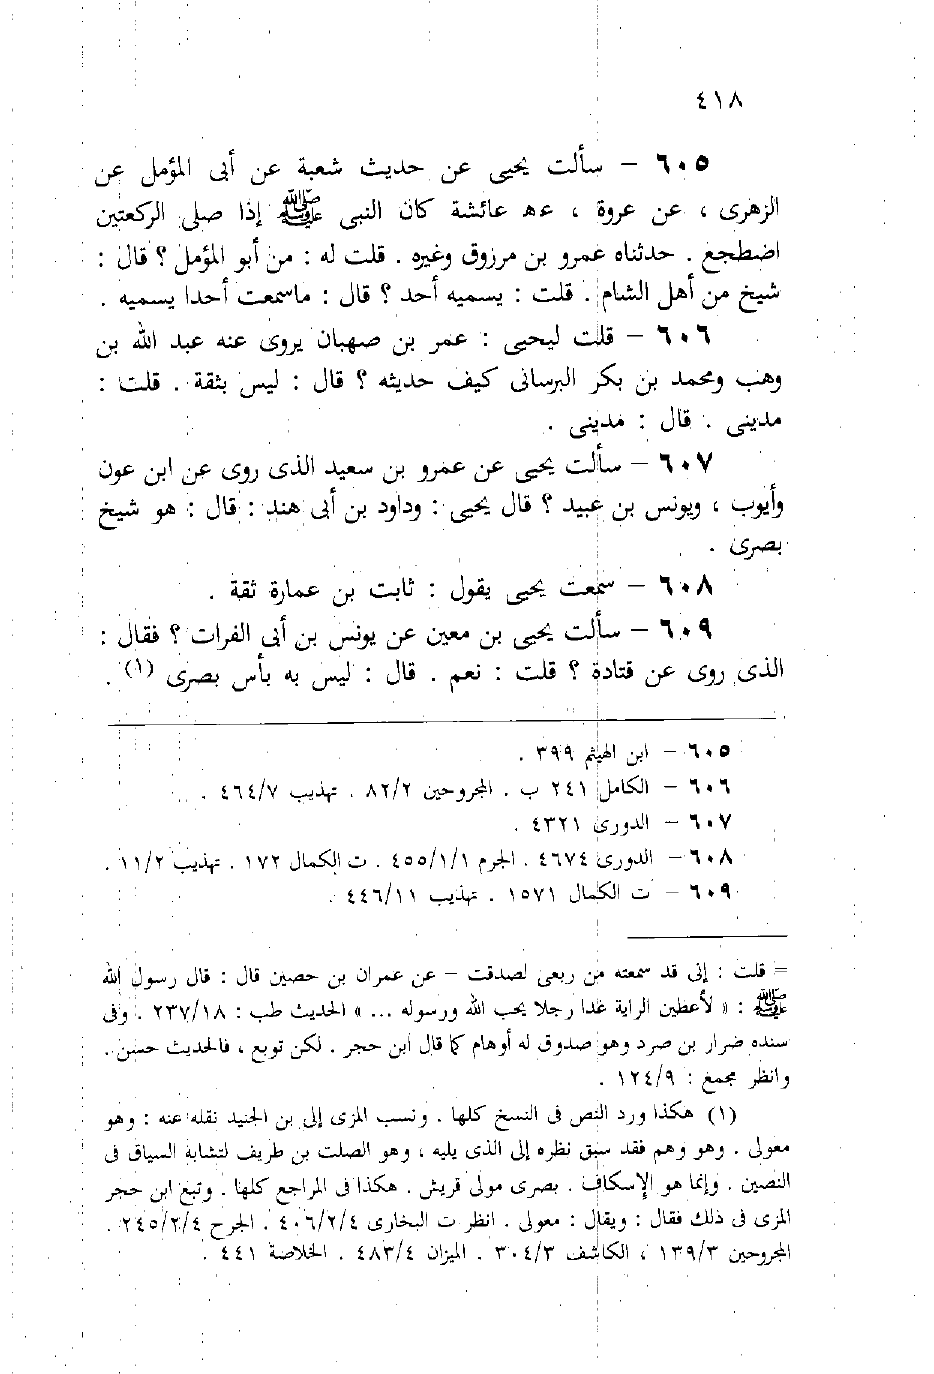 ٤١٨
٦٠٥ – سألت يحيى عن حديث شعبة عن أبى المؤمل عن
الزهرى ، عن عروة ، عن عائشة كان النبى ﷺ إذا صلى الركعتين
اضطجع . حدثناه عمرو بن مرزوق وغيره . قلت له : من أبو المؤمل ؟ قال :
شيخ من أهل الشام . قلت : يسميه أحد ؟ قال : ماسمعت أحدا يسميه .
٦٠٦ – قلت ليحيى : عمر بن صهبان يروى عنه عبد الله بن
وهب ومحمد بن بكر البرسانى كيف حديثه ؟ قال : ليس بثقة . قلت :
مدينى . قال : مدينى .
٦٠٧ – سألت يحيى عن عمرو بن سعيد الذى روى عن ابن عون
وأيوب ، ويونس بن عبيد ؟ قال يحيى : وداود بن أبى هند : قال : هو شيخ
بصرى .
٦٠٨ – سمعت يحيى يقول : ثابت بن عمارة ثقة .
٦٠٩ – سألت يحيى بن معين عن يونس بن أبى الفرات ؟ فقال :
الذى روى عن قتادة ؟ قلت : نعم . قال : ليس به بأس بصرى (١) .
٦٠٥ – ابن الهيثم ٣٩٩ .
٦٠٦ – الكامل ٢٤١ ب . المجروحين ٨٢/٢ . تهذيب ٤٦٤/٧ .
٦٠٧ – الدورى ٤٣٢١ .
٦٠٨ – الدورى ٤٦٧٤ . الجرم ٤٥٥/١/١ . ت الكمال ١٧٢ . تهذيب ١١/٢ .
٦٠٩ – ت الكمال ١٥٧١ . تهذيب ٤٤٦/١١ .
= قلت : إنى قد سمعته من ربعى لصدقت – عن عمران بن حصين قال : قال رسول الله
ﷺ : « لأعطين الراية غدا رجلا يحب الله ورسوله ... » الحديث طب : ٢٣٧/١٨ . وفى
سنده ضرار بن صرد وهو صدوق له أوهام كما قال ابن حجر . لكن توبع ، فالحديث حسن .
وانظر مجمع : ١٢٤/٩ .
(١) هكذا ورد النص فى النسخ كلها . ونسب المزى إلى بن الجنيد نقله عنه : وهو
معولى . وهو وهم فقد سبق نظره إلى الذى يليه ، وهو الصلت بن طريف لتشابة السياق فى
النصين . وإنما هو الإسكاف . بصرى مولى قريش . هكذا فى المراجع كلها . وتبع ابن حجر
المزى فى ذلك فقال : ويقال : معولى . انظر ت البخارى ٤٠٦/٢/٤ . الجرح ٢٤٥/٢/٤ .
المجروحين ١٣٩/٣ ، الكاشف ٣٠٤/٣ . الميزان ٤٨٣/٤ . الخلاصة ٤٤١ .